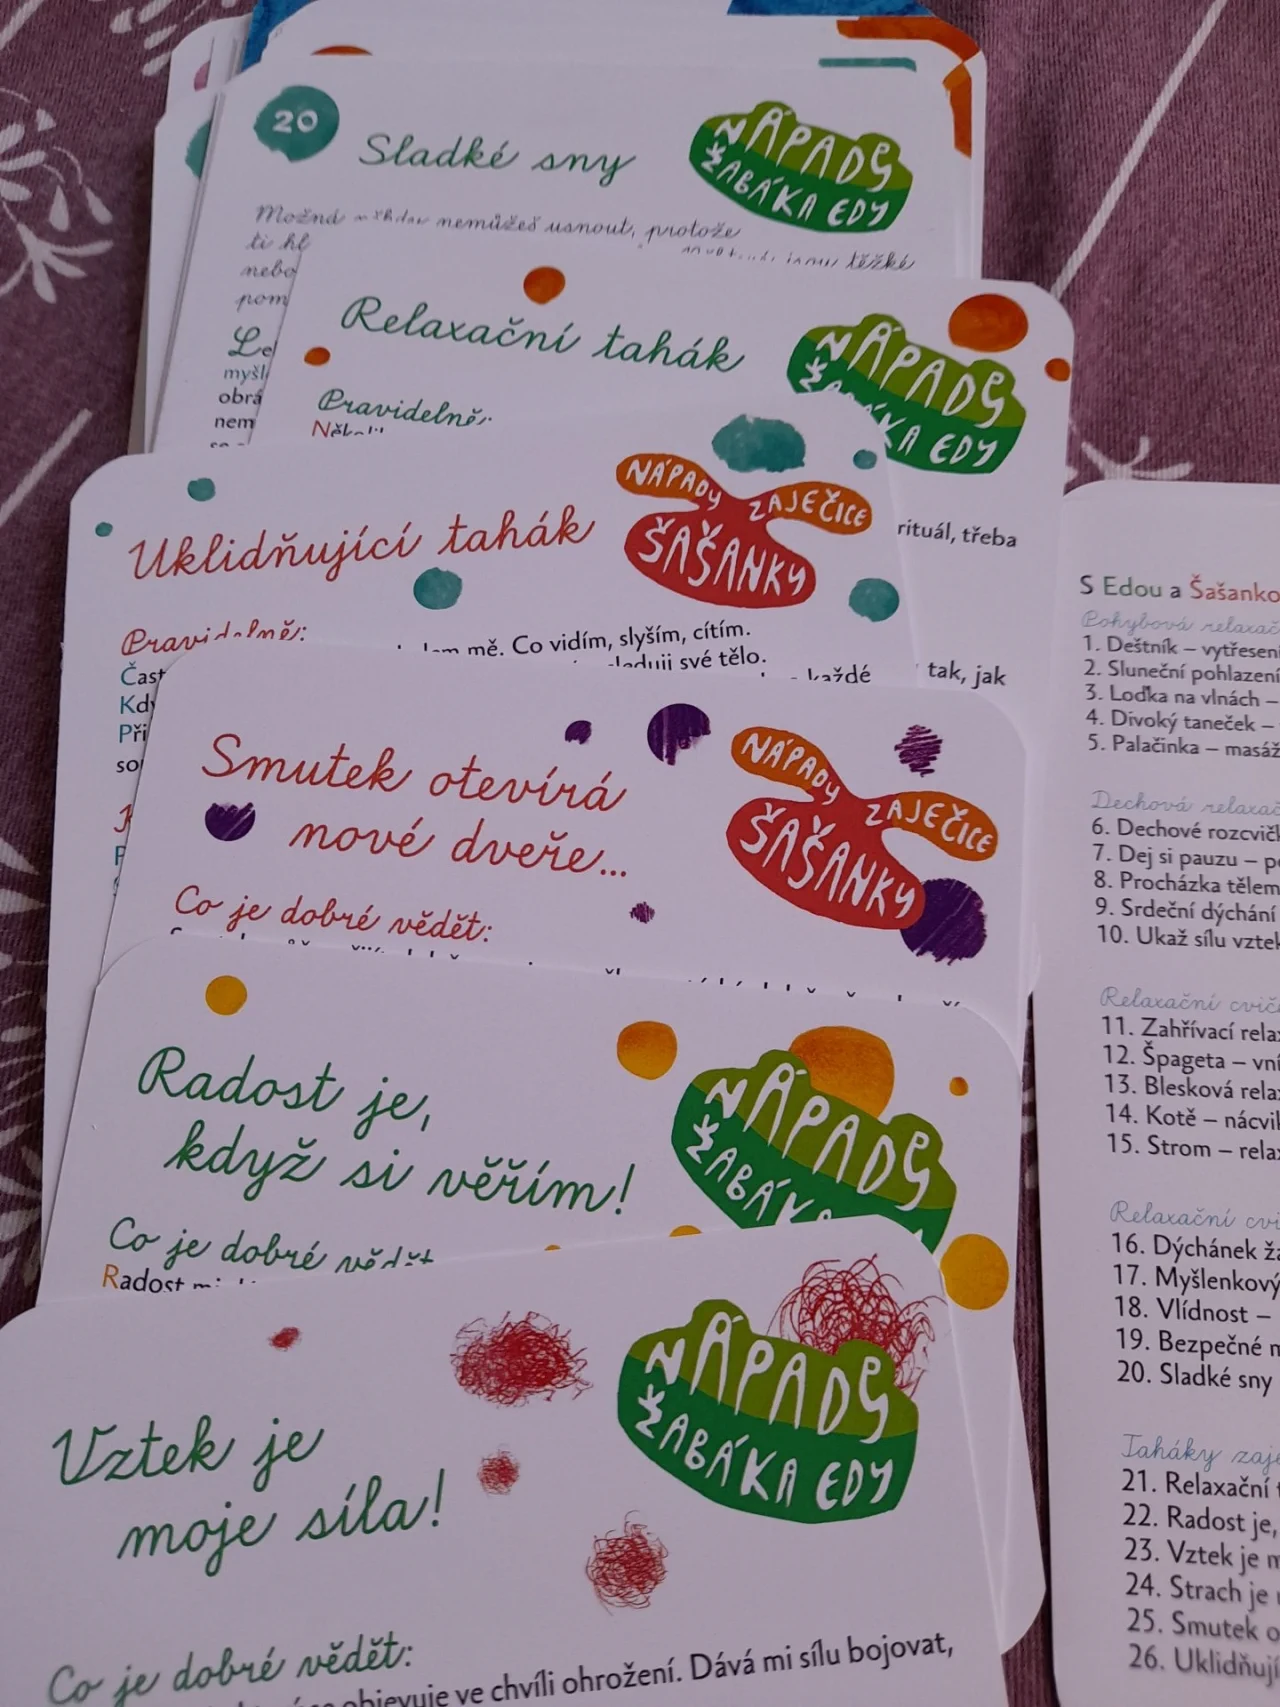 20
Sladké sny
NÁPADY
ŽABÁKA EDY
Možná nemůžeš usnout, protože
ti
těžké
nebo
Relaxační tahák
NÁPADY
EDY
Pravidelně:
rituál, třeba
tak, jak
Uklidňující tahák
NÁPADY
ZAJEČICE
ŠAŠANKY
Pravidelně:
mě. Co vidím, slyším, cítím.
své tělo.
každé
Smutek otevírá
nové dveře...
NÁPADY
ZAJEČICE
ŠAŠANKY
Co je dobré vědět:
Radost je,
když si věřím!
NÁPADY
Co je dobré vědět
Radost
Vztek je
moje síla!
NÁPADY
ŽABÁKA EDY
Co je dobré vědět:
objevuje ve chvíli ohrožení. Dává mi sílu bojovat,
S Edou a
Pohybová
1. Deštník –
2. Sluneční pohlazení
3. Loďka na vlnách –
4. Divoký taneček –
5. Palačinka –
Dechová
6. Dechové
7. Dej si pauzu –
8. Procházka tělem
9. Srdeční dýchání
10. Ukaž sílu
Relaxační
11. Zahřívací
12. Špageta –
13. Blesková
14. Kotě –
15. Strom –
Relaxační
16. Dýchánek
17. Myšlenkový
18. Vlídnost –
19. Bezpečné
20. Sladké sny
Taháky
21. Relaxační
22. Radost je,
23. Vztek je
24. Strach je
25. Smutek
26.